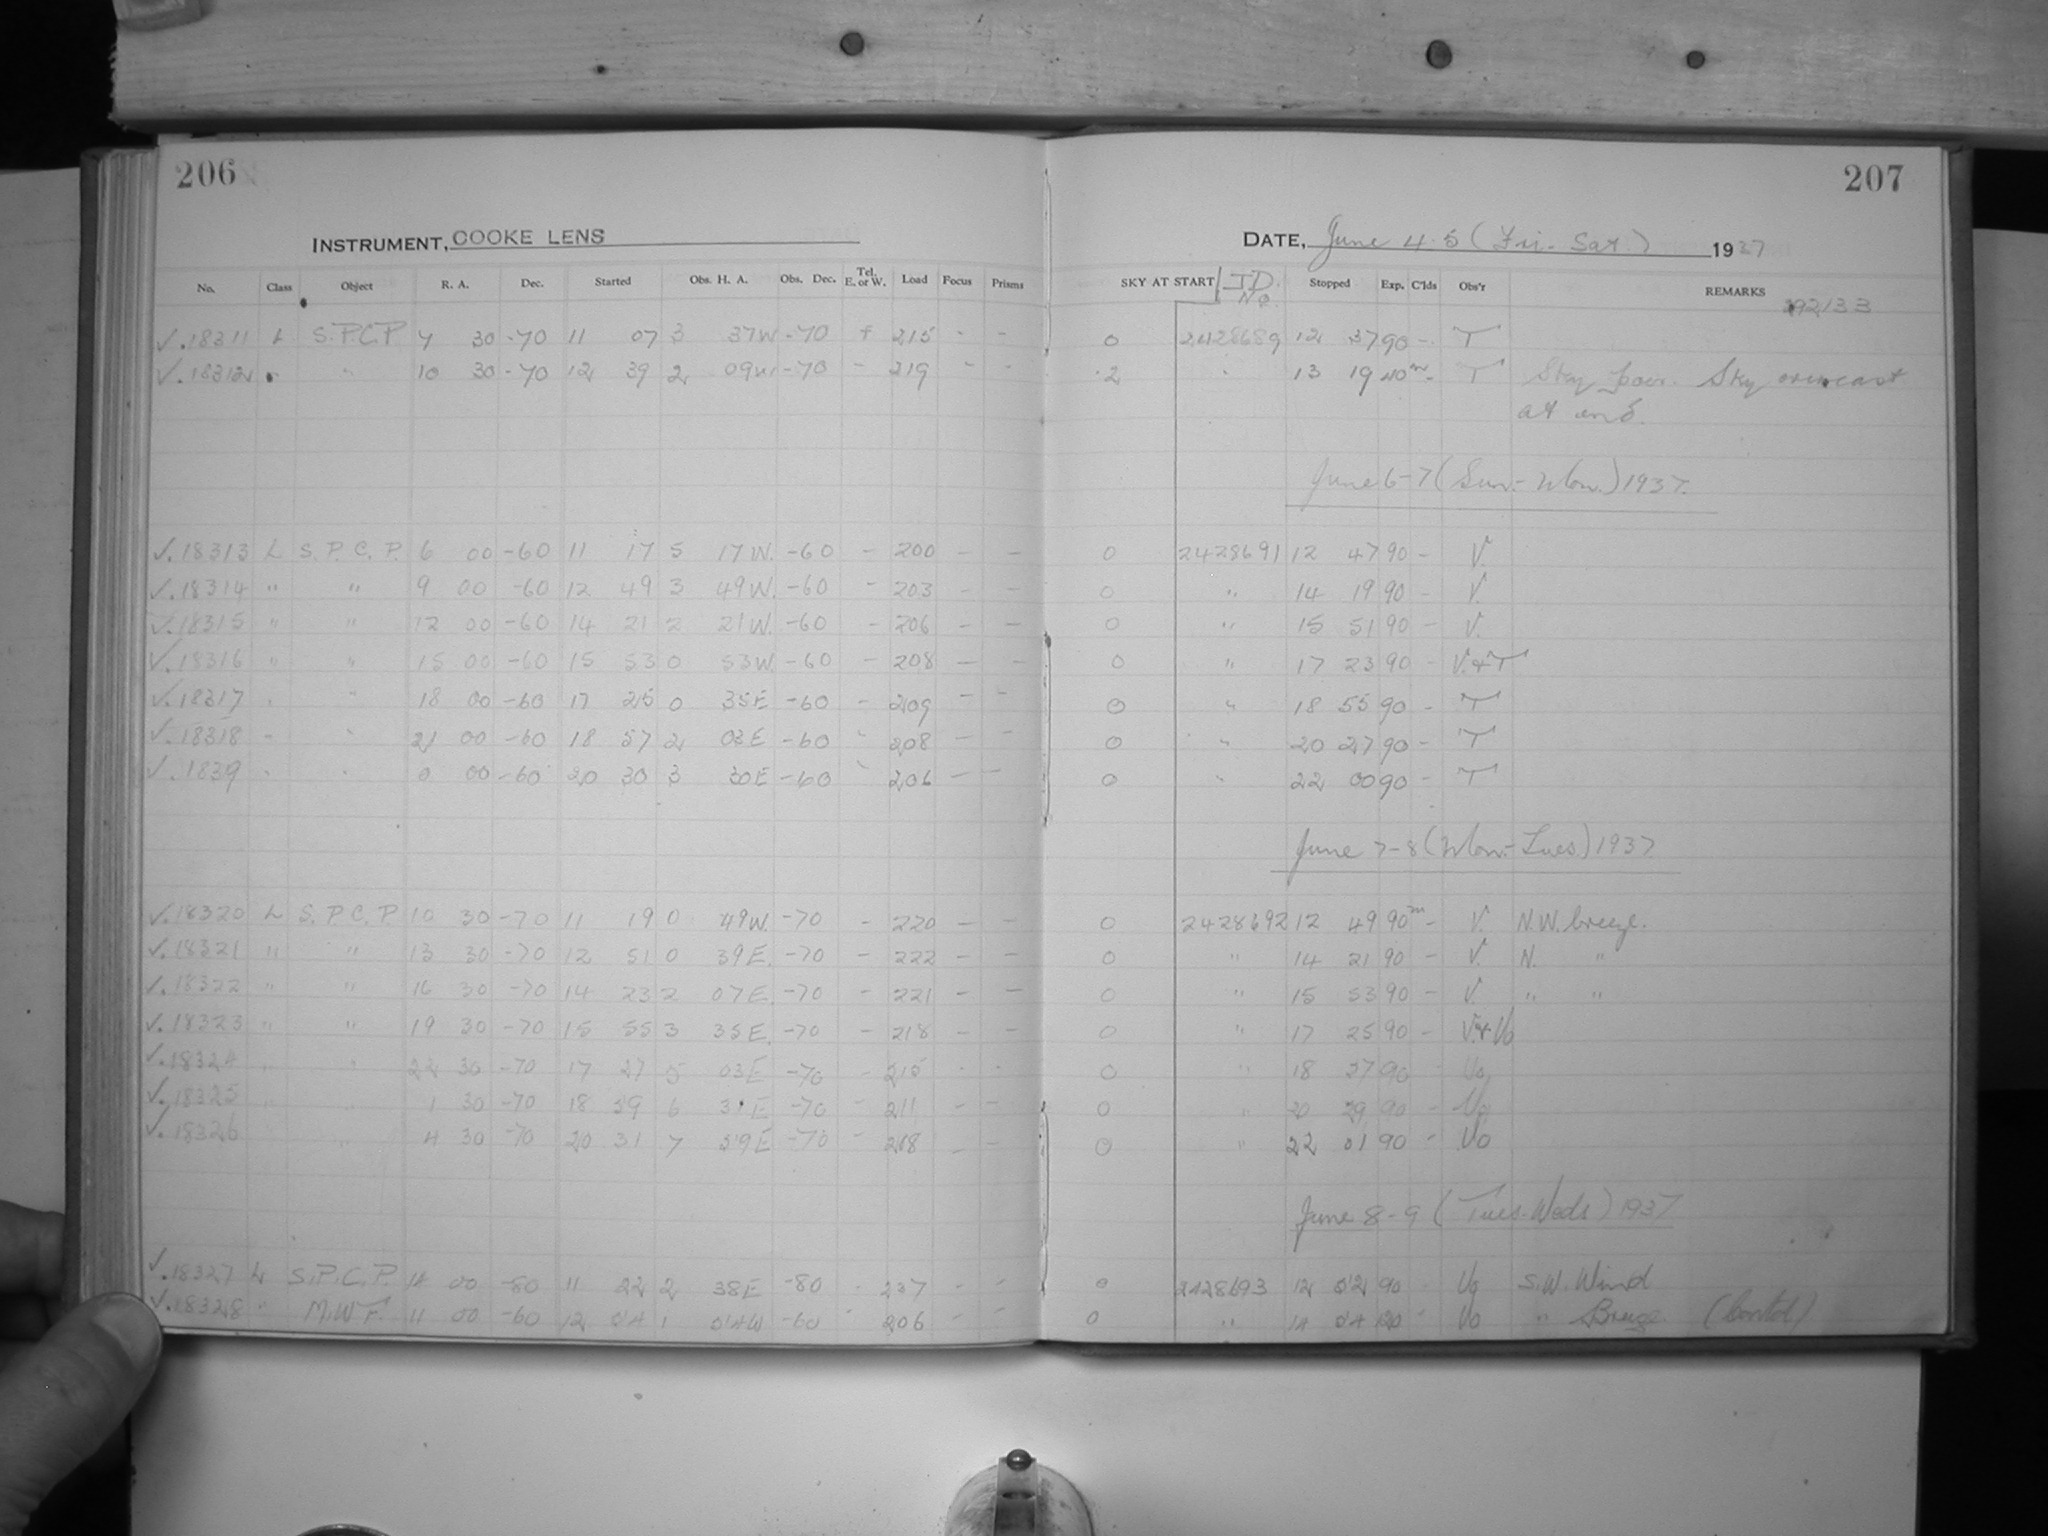 206
207
INSTRUMENT, COOKE LENS
DATE, June 4-5 (Fri.- Sat.) 1937
No. Class Object R. A. Dec. Started Obs. H. A. Obs. Dec. Tel. E. or W. Load Focus Prisms SKY AT START J.D. No. Stopped Exp. C'lds Obs'r REMARKS
✓.18311 L S.P.C.P. 7 30 -70 11 07 3 37W -70 + 215 - - 0 2428689 12 37 90 - T
✓.18312 " 10 30 -70 12 39 2 09W -70 - 219 - - 2 " 13 19 40m - T Sky poor. Sky overcast
at end.
June 6-7 (Sun.- Mon.) 1937.
✓.18313 L S.P.C.P. 6 00 -60 11 17 5 17W. -60 - 200 - - 0 2428691 12 47 90 - V.
✓.18314 " " 9 00 -60 12 49 3 49W. -60 - 203 - - 0 " 14 19 90 - V.
✓.18315 " " 12 00 -60 14 21 2 21W. -60 - 206 - - 0 " 15 51 90 - V.
✓.18316 " " 15 00 -60 15 53 0 53W. -60 - 208 - - 0 " 17 23 90 - V.&T
✓.18317 " " 18 00 -60 17 25 0 35E -60 - 209 - - 0 " 18 55 90 - T
✓.18318 " " 21 00 -60 18 57 2 03E -60 - 208 - - 0 " 20 27 90 - T
✓.1839 " " 0 00 -60 20 30 3 30E -60 - 206 - - 0 " 22 00 90 - T
June 7-8 (Mon.- Tues.) 1937
✓.18320 L S.P.C.P. 10 30 -70 11 19 0 49W. -70 - 220 - - 0 2428692 12 49 90m - V. N.W. breeze.
✓.18321 " " 13 30 -70 12 51 0 39E. -70 - 222 - - 0 " 14 21 90 - V. N. "
✓.18322 " " 16 30 -70 14 23 2 07E. -70 - 221 - - 0 " 15 53 90 - V. " "
✓.18323 " " 19 30 -70 15 55 3 35E. -70 - 218 - - 0 " 17 25 90 - V.&Vo
✓.18324 " " 22 30 -70 17 27 5 03E -70 - 215 - - 0 " 18 57 90 - Vo
✓.18325 " " 1 30 -70 18 59 6 31E -70 - 211 - - 0 " 20 29 90 - Vo
✓.18326 " 4 30 -70 20 31 7 59E -70 - 208 - - 0 " 22 01 90 - Vo
June 8-9 (Tues-Weds) 1937
✓.18327 L S.P.C.P. 14 00 -80 11 22 2 38E -80 - 237 - - 0 2428693 12 52 90 - Vo S.W. Wind
✓.18328 " M.W.F. 11 00 -60 12 54 1 -60 - 206 - - 0 " 14 54 120 - Vo " Breeze. (Contd)